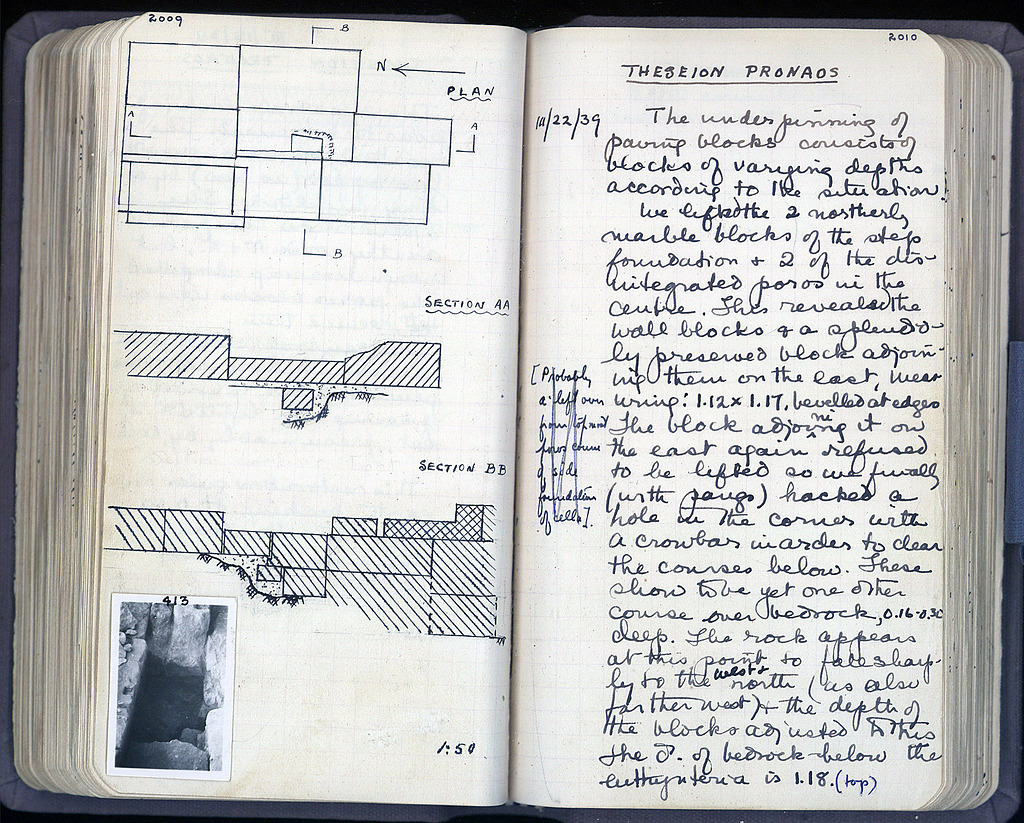 2009
B
N
PLAN
A
A
B
SECTION AA
SECTION BB
413
1:50
2010
THESEION PRONAOS
The underpinning of
paving blocks consists of
blocks of varying depths
according to the situation.
We lifted the 2 northerly
marble blocks of the step
foundation + 2 of the dis-
integrated poros in the
centre. This revealed the
wall blocks & a splendid-
ly preserved block adjoin-
ing them on the east, meas
uring: 1.12 x 1.17, bevelled at edges
The block adjoining it on
the east again refused
to be lifted so we finally
(with pangs) hacked a
hole in the corner with
a crowbar in order to clear
the courses below. These
show to be yet one other
course over bedrock, 0.16-0.30
deep. The rock appears
at this point to fall sharp-
ly to the west & north (as also
farther west) & the depth of
the blocks adjusted to this
The of bedrock below the
euthynteria is 1.18. (top)
/22/39
[Probably
a left over
from
poros course
of side
foundation
of cella].